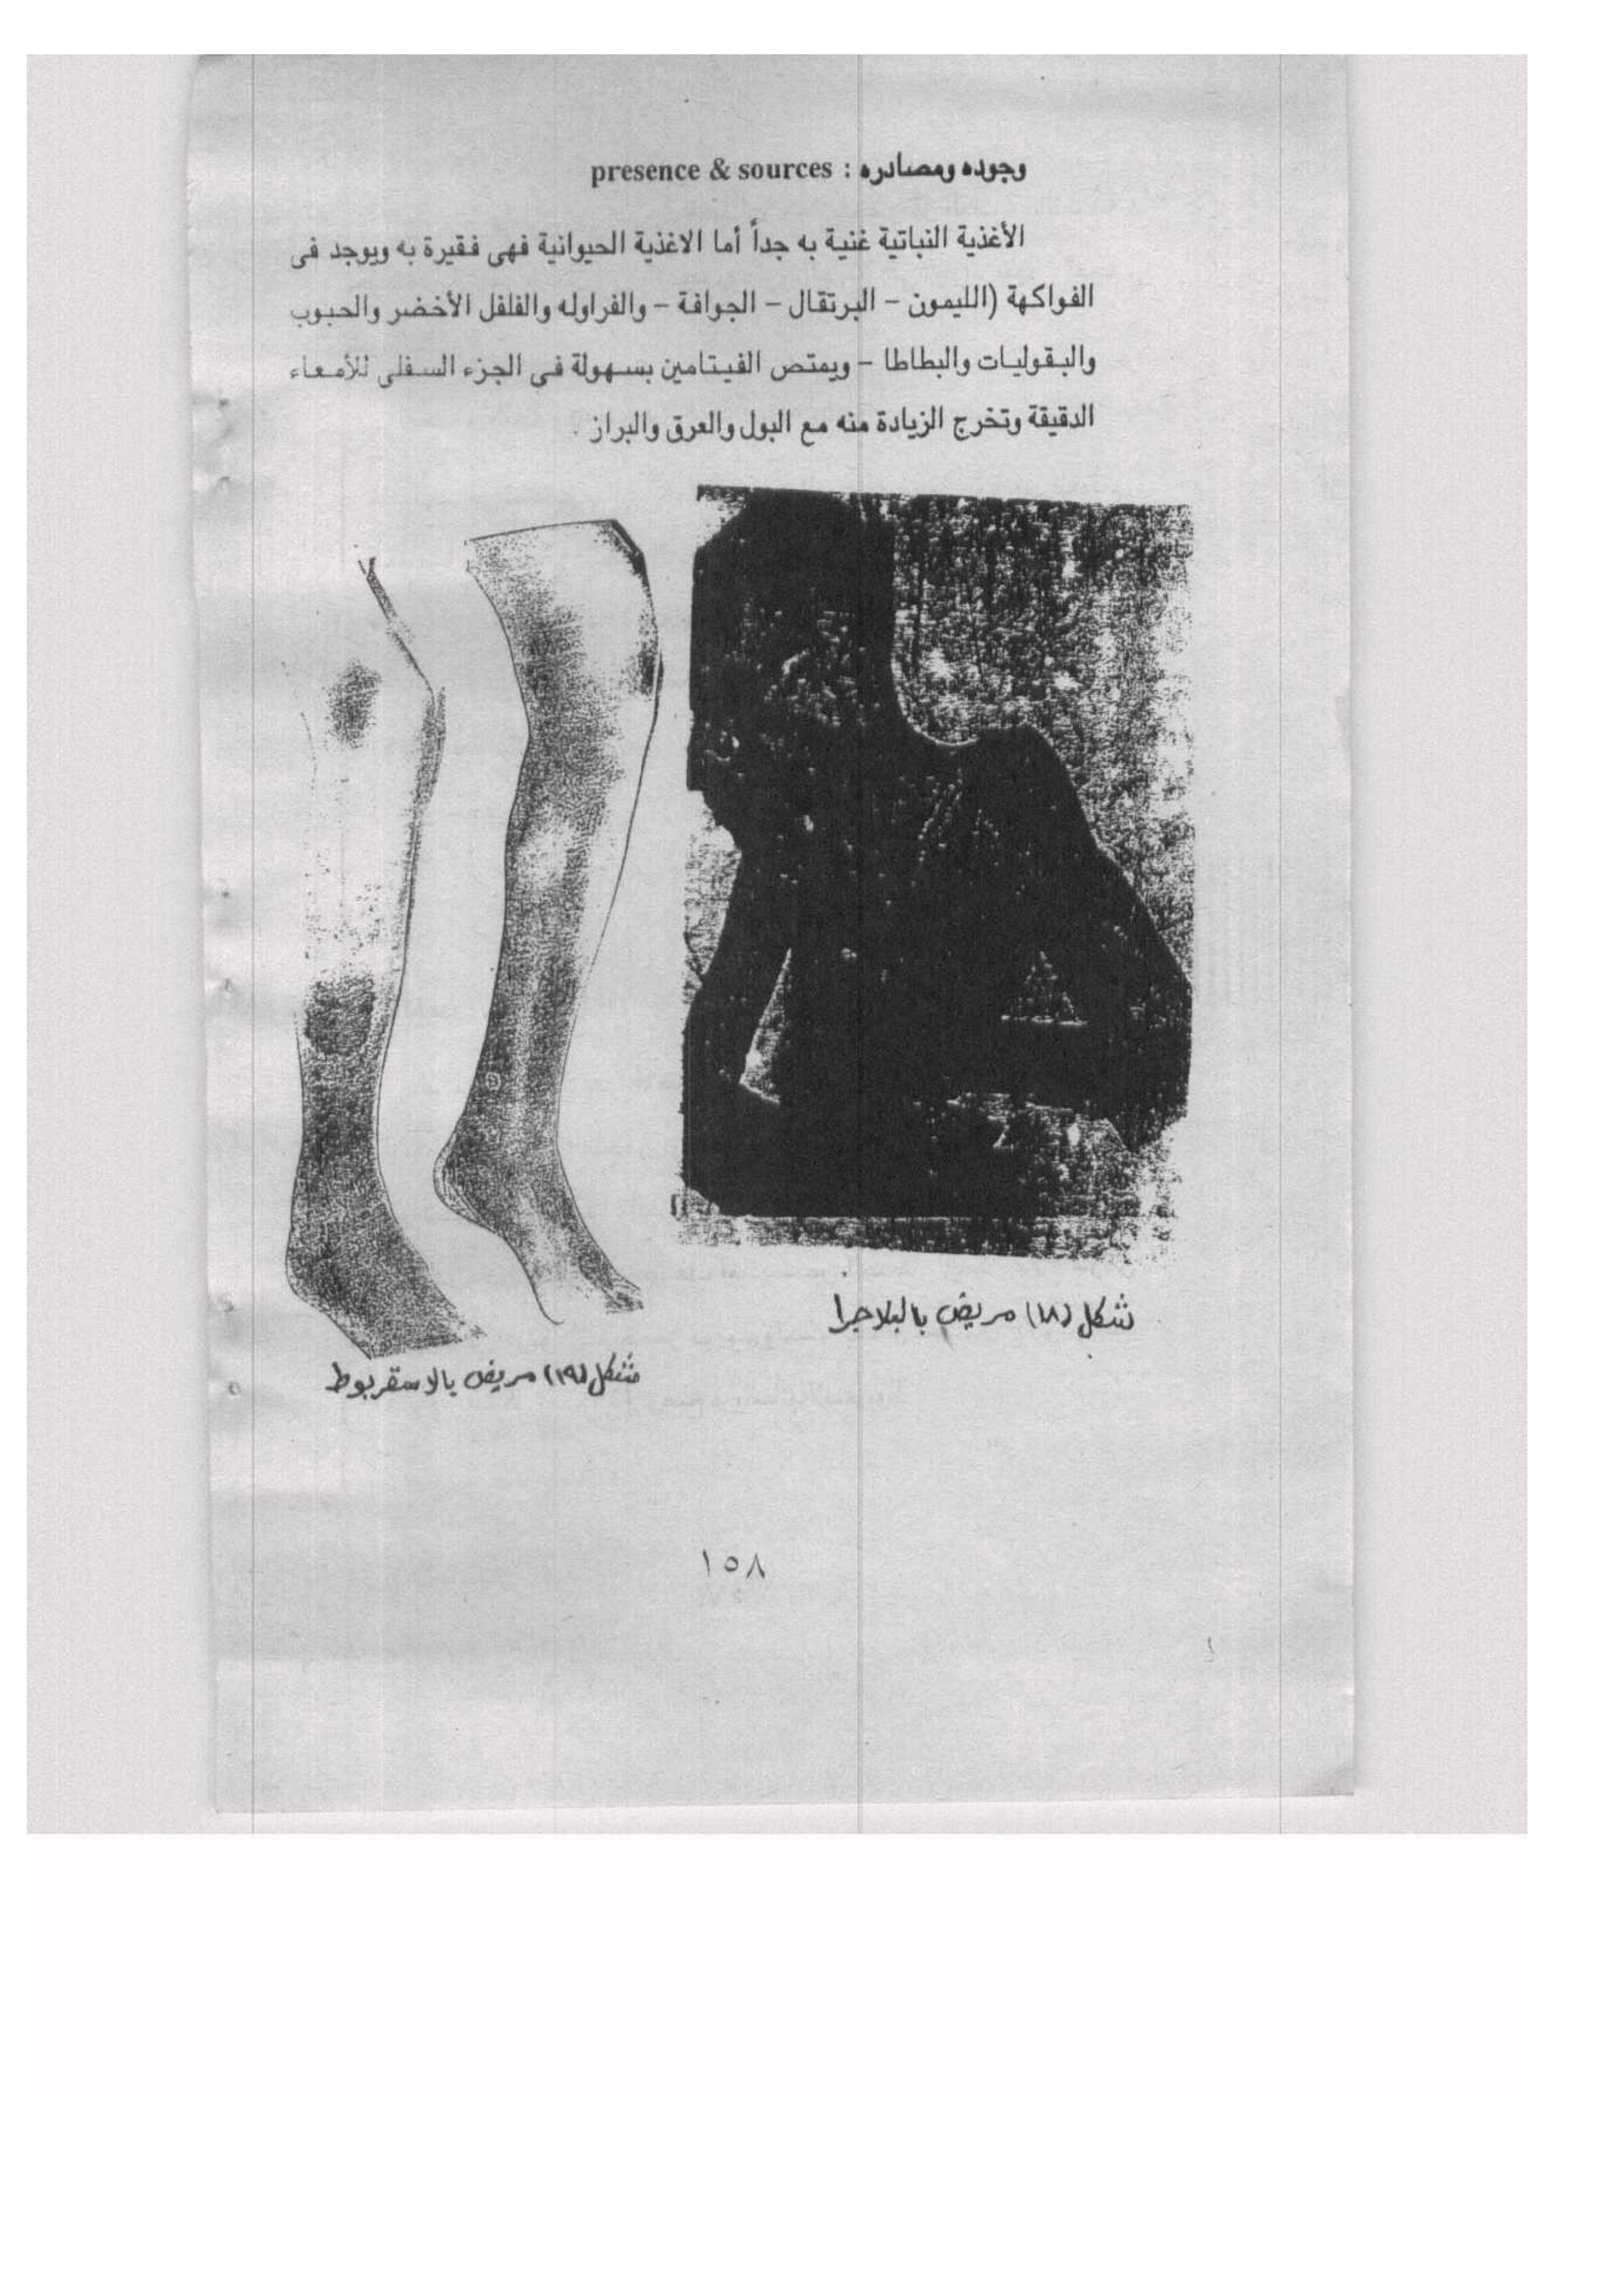 وجوده ومصادره : presence & sources
الأغذية النباتية غنية به جداً أما الاغذية الحيوانية فهى فقيرة به ويوجد فى
الفواكهة (الليمون – البرتقال – الجوافة – والفراوله والفلفل الأخضر والحبوب
والبقوليات والبطاطا – ويمتص الفيتامين بسهولة فى الجزء السفلى للأمعاء
الدقيقة وتخرج الزيادة منه مع البول والعرق والبراز .
شكل (١٨) مريض بالبلاجرا
شكل (١٩) مريض بالاسقربوط
١٥٨